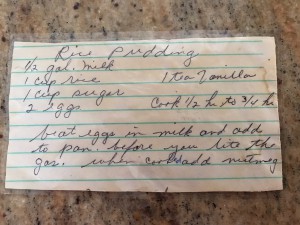 Rice Pudding
1/2 gal. milk
1 cup rice 1 tea Vanilla
1 cup sugar
2 eggs Cook 1/2 hr to 3/4 hr
beat eggs in milk and add
to pan. before you lite the
gas. when cool add nutmeg